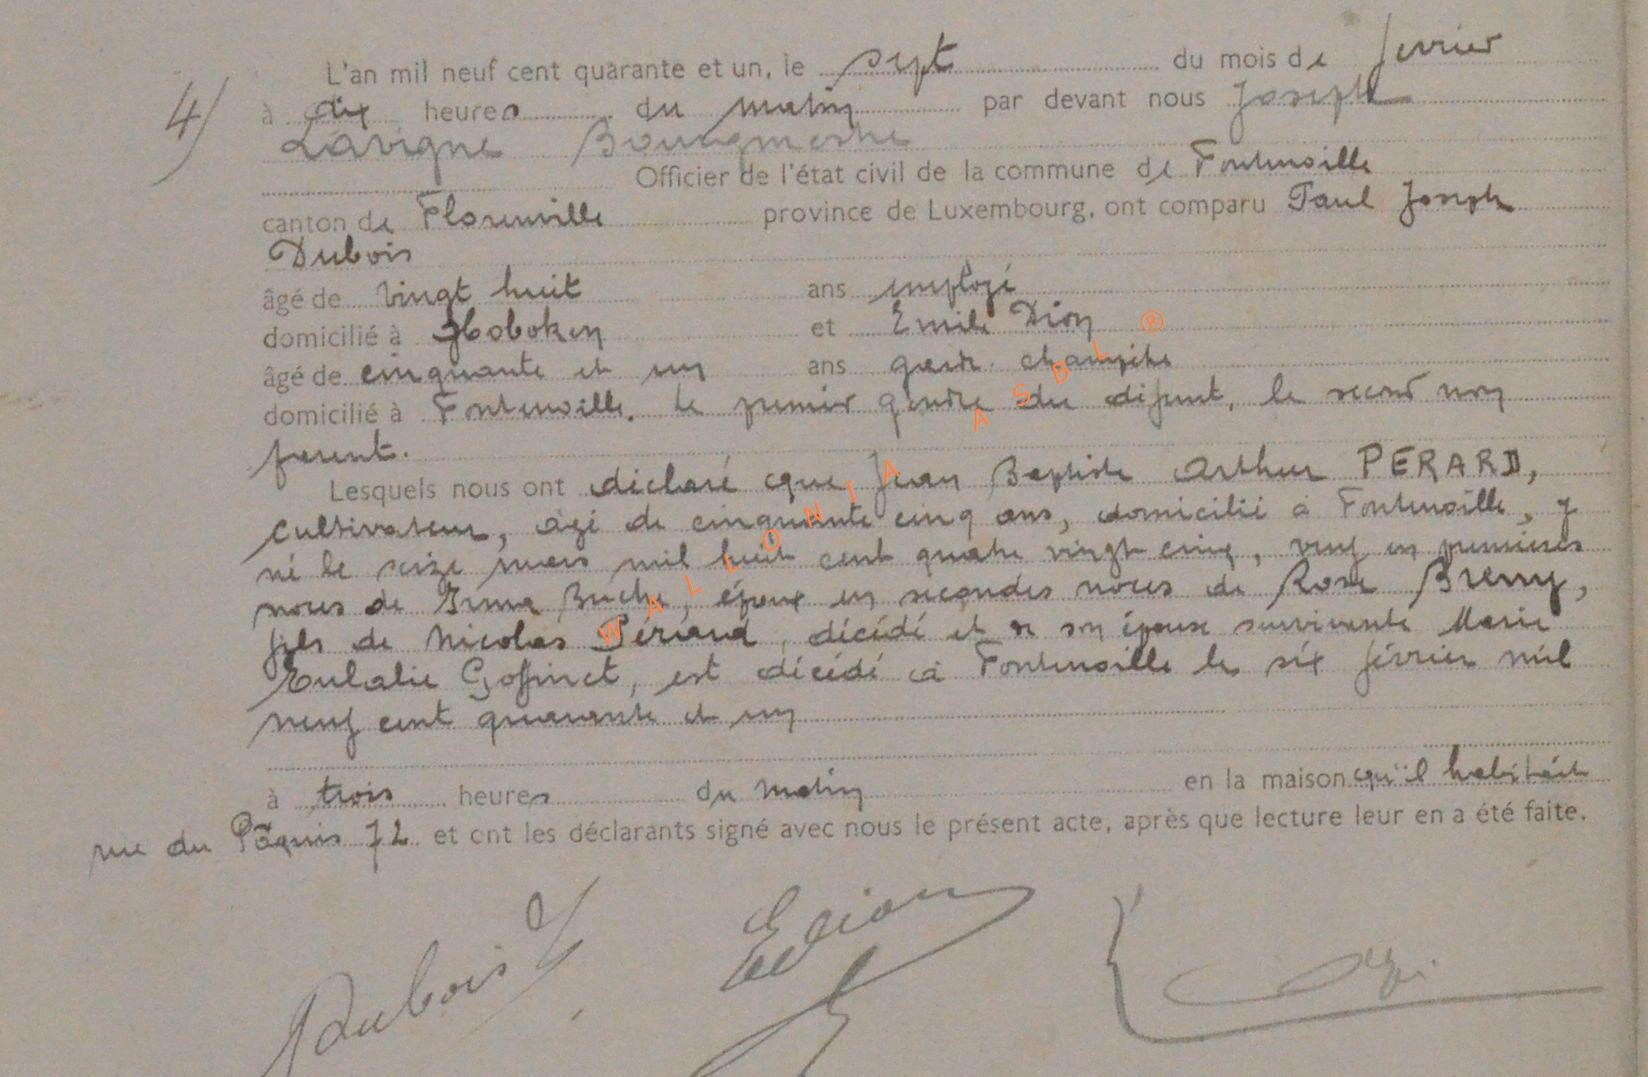 L'an mil neuf cent quarante et un, le sept du mois de fevrier
4) à dix heures du matin par devant nous Joseph
Lavigne Bourgmestre
Officier de l'état civil de la commune de Fontenoille
canton de Florenville province de Luxembourg, ont comparu Paul Joseph
Dubois
âgé de vingt huit ans employé
domicilié à Hoboken et Emile Dion
âgé de cinquante et un ans garde champêtre
domicilié à Fontenoille. Le premier gendre du défunt, le second non
parent.
Lesquels nous ont déclaré que Jean Baptiste Arthur PERARD,
cultivateur, âgé de cinquante cinq ans, domicilié à Fontenoille, y
né le seize mars mil huit cent quatre vingt cinq, veuf en premières
noces de Irma Buche, époux en secondes noces de Rose Bremy,
fils de Nicolas Pérard, décédé et de son épouse survivante Marie
Eulalie Goffinet, est décédé à Fontenoille le six février mil
neuf cent quarante et un
à trois heures du matin en la maison qu'il habitait
rue du Pâquis 72 et ont les déclarants signé avec nous le présent acte, après que lecture leur en a été faite.
Dubois EDion
WALLONIA ASBL ®